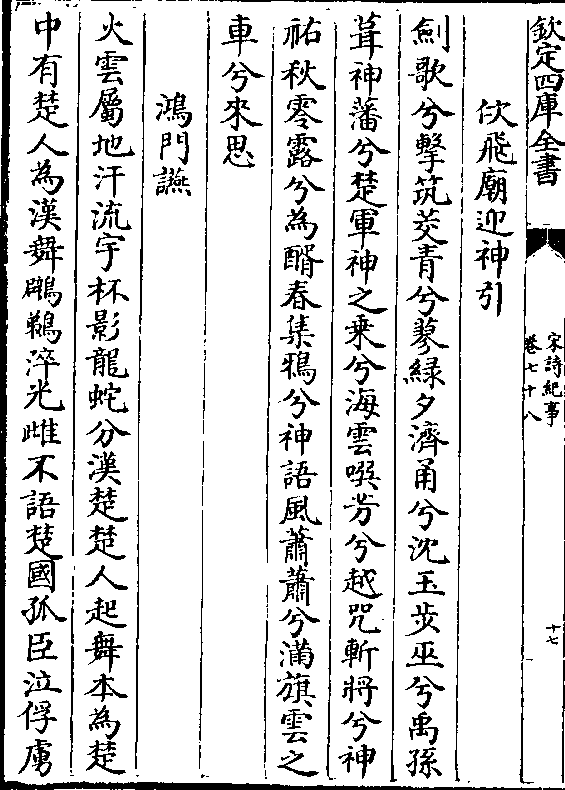 欽定四庫全書
宋詩紀事
卷七十八
十七
佽飛廟迎神引
劍歌兮擊筑茭青兮蓼緑夕濟甬兮沈玉步巫兮禹孫
葺神藩兮楚軍神之乗兮海雲噀芳兮越咒斬將兮神
祐秋零露兮為醑春集鴉兮神語風蕭蕭兮滿旗雲之
車兮來思
鴻門讌
火雲屬地汗流宇杯影龍蛇分漢楚楚人起舞本為楚
中有楚人為漢舞鸊鵜淬光雌不語楚國孤臣泣俘虜